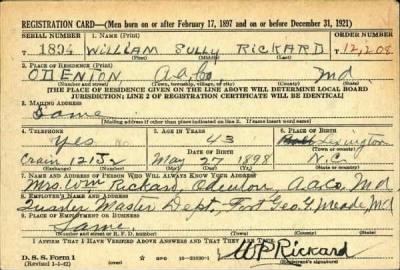 REGISTRATION CARD—(Men born on or after February 17, 1897 and on or before December 31, 1921)
SERIAL NUMBER 1. NAME (Print) ORDER NUMBER
1894 WILLIAM SULLY RICKARD T 12,208
(First) (Middle) (Last)
2. PLACE OF RESIDENCE (Print)
ODENTON A.A.Co Md.
(Number and street) (Town, township, village, or city) (County) (State)
[THE PLACE OF RESIDENCE GIVEN ON THE LINE ABOVE WILL DETERMINE LOCAL BOARD
JURISDICTION; LINE 2 OF REGISTRATION CERTIFICATE WILL BE IDENTICAL]
3. MAILING ADDRESS
Same
[Mailing address if other than place indicated on line 2. If same insert word same]
4. TELEPHONE 5. AGE IN YEARS 6. PLACE OF BIRTH
Yes 43 Lexington
DATE OF BIRTH
Crain 12J2 May 27 1898 N.C.
(Exchange) (Number) (Mo.) (Day) (Yr.) (State or country)
7. NAME AND ADDRESS OF PERSON WHO WILL ALWAYS KNOW YOUR ADDRESS
Mrs. Wm Rickard, Odenton, A.A.Co, Md.
8. EMPLOYER'S NAME AND ADDRESS
Quarter Master Dept, Fort Geo G. Meade, Md
9. PLACE OF EMPLOYMENT OR BUSINESS
Same
(Number and street or R. F. D. number) (Town) (County) (State)
I AFFIRM THAT I HAVE VERIFIED ABOVE ANSWERS AND THAT THEY ARE TRUE.
D. S. S. Form 1
(Revised 1-1-42) (over)
Rickard